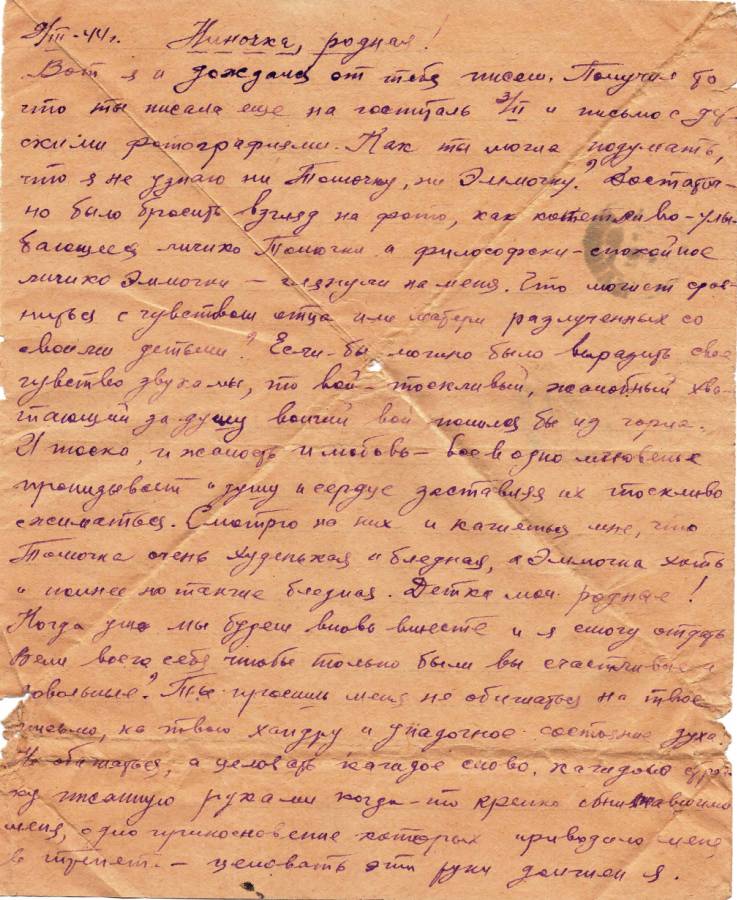 9/III-44г. Ниночка, родная!
Вот я и дождался от тебя писем. Получил то
что ты писала еще на госпиталь 3/II и письмо с дет-
скими фотографиями. Как ты могла подумать,
что я не узнаю ни Томочку, ни Эммочку? Достаточ-
но было бросить взгляд на фото, как кокетливо-улы-
бающееся личико Томочки и философски-спокойное
личико Эммочки — глянули на меня. Что может срав-
ниться с чувством отца или матери разлученных со
своими детьми? Если-бы можно было выразить свое
чувство звуками, то вой-тоскливый, жалобный хва-
тающий за душу волчий вой полился бы из горла.
И тоска, и жалость и любовь — все в одно мгновенье
пронизывает и душу и сердце заставляя их тоскливо
сжиматься. Смотрю на них и кажеться мне, что
Томочка очень худенькая и бледная, а Эммочка хоть
и полнее но также бледная. Детка моя родная!
Когда уже мы будем вновь вместе и я смогу отдать
Вам всего себя чтобы только были вы счастливые и
довольные? Ты просишь меня не обижаться на твое
письмо, на твою хандру и упадочное состояние духа.
Не обижаться, а целовать каждое слово, каждую строч-
ку писанную руками когда-то крепко обнимавшими
меня, одно прикосновение которых приводило меня
в трепет — целовать эти руки должен я.